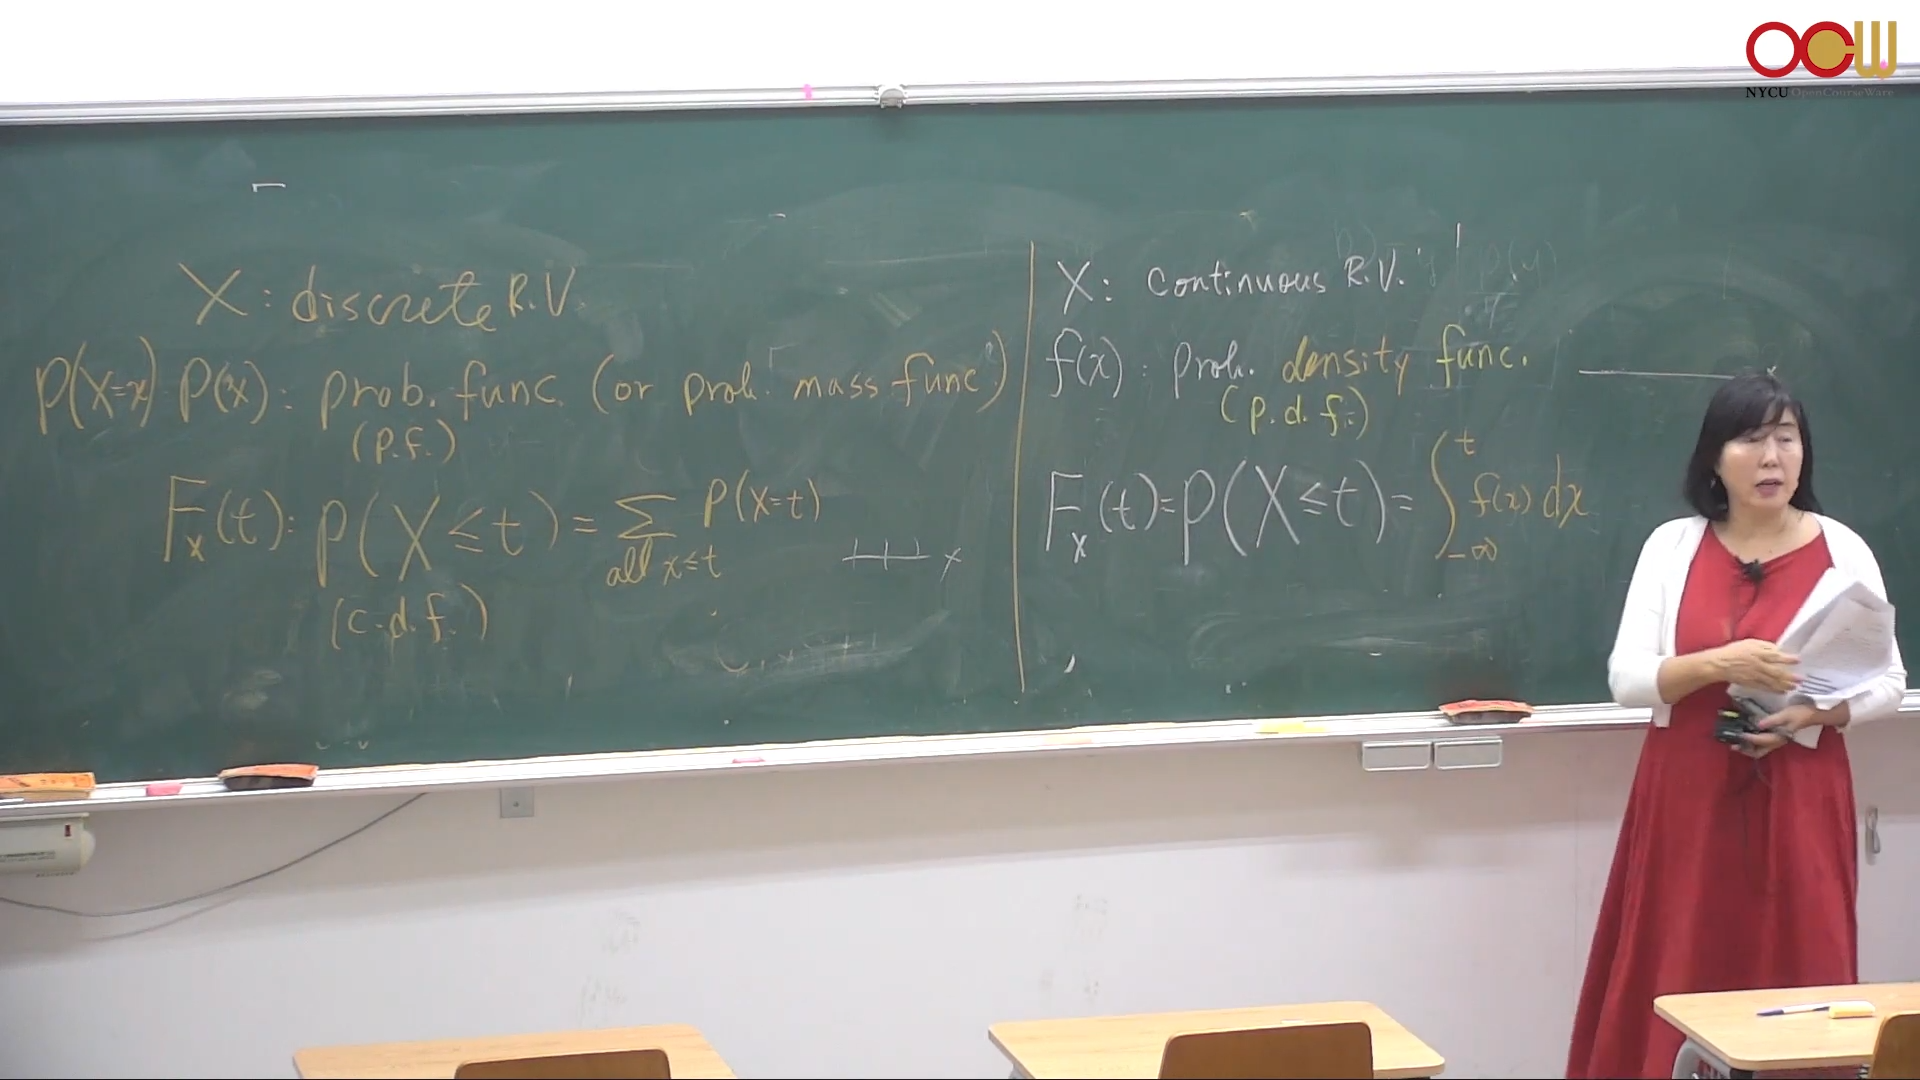 OCW
NYCU OpenCourseWare
X : discrete R.V.
P(X=x) P(x) : prob. func. (or prob. mass func.)
(p.f.)
F_X(t) : P(X ≤ t) = Σ_{all x≤t} P(X=t)
x
(c.d.f.)
X : Continuous R.V.
f(x) : prob. density func.
(p.d.f.)
F_X(t) = P(X ≤ t) = ∫_{-∞}^{t} f(x) dx